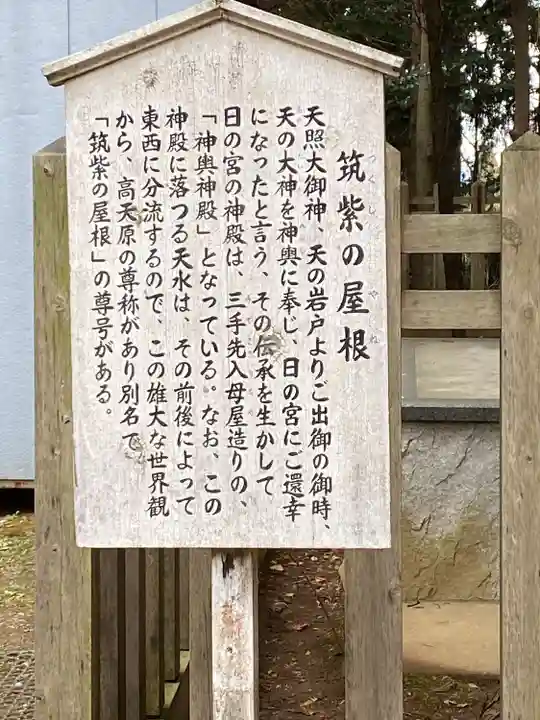 筑紫の屋根
つくし や ね
天照大御神、天の岩戸よりご出御の御時、
天の大神を神輿に奉じ、日の宮にご還幸
になったと言う、その伝承を生かして
日の宮の神殿は、三手先入母屋造りの、
「神輿神殿」となっている。なお、この
神殿に落つる天水は、その前後によって
東西に分流するので、この雄大な世界観
から、高天原の尊称があり別名で
「筑紫の屋根」の尊号がある。